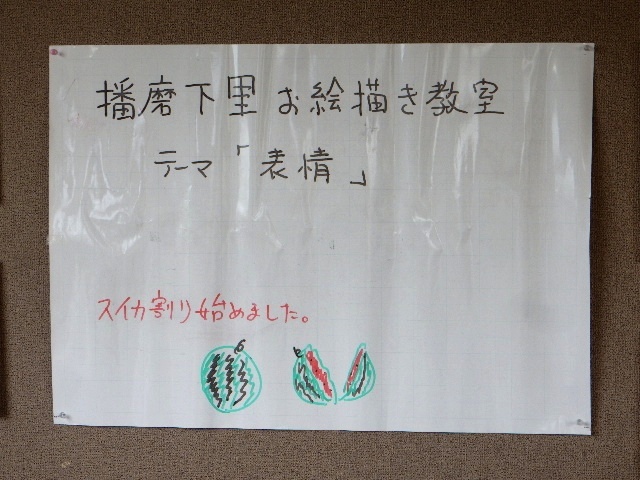 播磨下里お絵描き教室
テーマ「表情」
スイカ割り始めました。